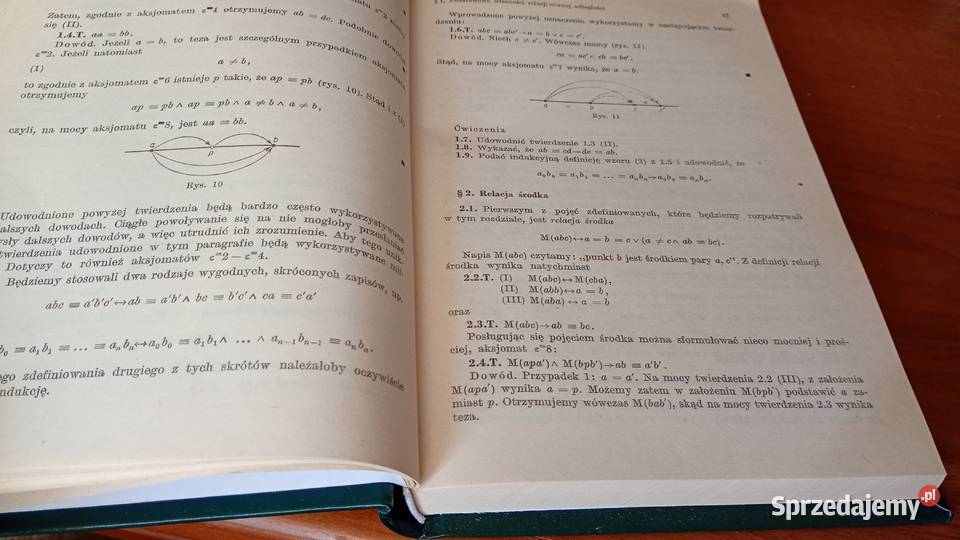 Zatem, zgodnie z aksjomatem ε≡4 otrzymujemy ab = dc. Podobnie dowodzi
się (II).
1.4.T. aa ≡ bb.
Dowód. Jeżeli a = b, to teza jest szczególnym przypadkiem aksjomatu
ε≡2. Jeżeli natomiast
(1) a ≠ b,
to zgodnie z aksjomatem ε≡6 istnieje p takie, że ap ≡ pb (rys. 10). Stąd i z (1)
otrzymujemy
ap ≡ pb ∧ ap ≡ pb ∧ a ≠ b ∧ a ≠ b,
czyli, na mocy aksjomatu ε≡8, jest aa ≡ bb.
a p b
Rys. 10
Udowodnione powyżej twierdzenia będą bardzo często wykorzystywane
dalszych dowodach. Ciągłe powoływanie się na nie mogłoby przesłaniać
dalszych dowodów, a więc utrudnić ich zrozumienie. Aby tego
twierdzenia udowodnione w tym paragrafie będą wykorzystywane
Dotyczy to również aksjomatów ε≡2 – ε≡4.
Będziemy stosowali dwa rodzaje wygodnych, skróconych zapisów, np.
abc ≡ a'b'c' ↔ ab ≡ a'b' ∧ bc ≡ b'c' ∧ ca ≡ c'a'
b₀ ≡ a₁b₁ ≡ ... ≡ aₙbₙ ↔ a₀b₀ ≡ a₁b₁ ∧ ... ∧ aₙ₋₁bₙ₋₁ ≡ aₙbₙ.
zdefiniowania drugiego z tych skrótów należałoby oczywiście
indukcję.
Wprowadzone powyżej oznaczenia wykorzystamy w następującym twier-
dzeniu:
1.6.T. abc ≡ abc' → a = b ∨ c = c'.
Dowód. Niech c ≠ c'. Wówczas mamy (rys. 11)
ca ≡ ac' ∧ cb ≡ bc'.
Stąd, na mocy aksjomatu ε≡7 wynika, że a = b.
Rys. 11
Ćwiczenia
1.7. Udowodnić twierdzenie 1.3 (II).
1.8. Wykazać, że ab ≡ cd → dc ≡ ab.
1.9. Podać indukcyjną definicję wzoru (2) z 1.5 i udowodnić, że
a₀b₀ ≡ a₁b₁ ≡ ... ≡ aₙbₙ → a₀b₀ ≡ aₙbₙ.
§ 2. Relacja środka
2.1. Pierwszym z pojęć zdefiniowanych, które będziemy rozpatrywali
w tym rozdziale, jest relacja środka
M(abc) ↔ a = b = c ∨ (a ≠ c ∧ ab ≡ bc).
Napis M(abc) czytamy: „punkt b jest środkiem pary a, c". Z definicji relacji
środka wynika natychmiast
2.2.T. (I) M(abc) ↔ M(cba),
(II) M(abb) ↔ a = b,
(III) M(aba) ↔ a = b
oraz
2.3.T. M(abc) → ab ≡ bc.
Posługując się pojęciem środka można sformułować nieco mocniej i proś-
ciej, aksjomat ε≡8:
2.4.T. M(apa') ∧ M(bpb') → ab ≡ a'b'.
Dowód. Przypadek 1: a = a'. Na mocy twierdzenia 2.2 (III), z założenia
M(apa') wynika a = p. Możemy zatem w założeniu M(bpb') podstawić a za-
miast p. Otrzymujemy wówczas M(bab'), skąd na mocy twierdzenia 2.3 wynika
teza.
Sprzedajemy.pl